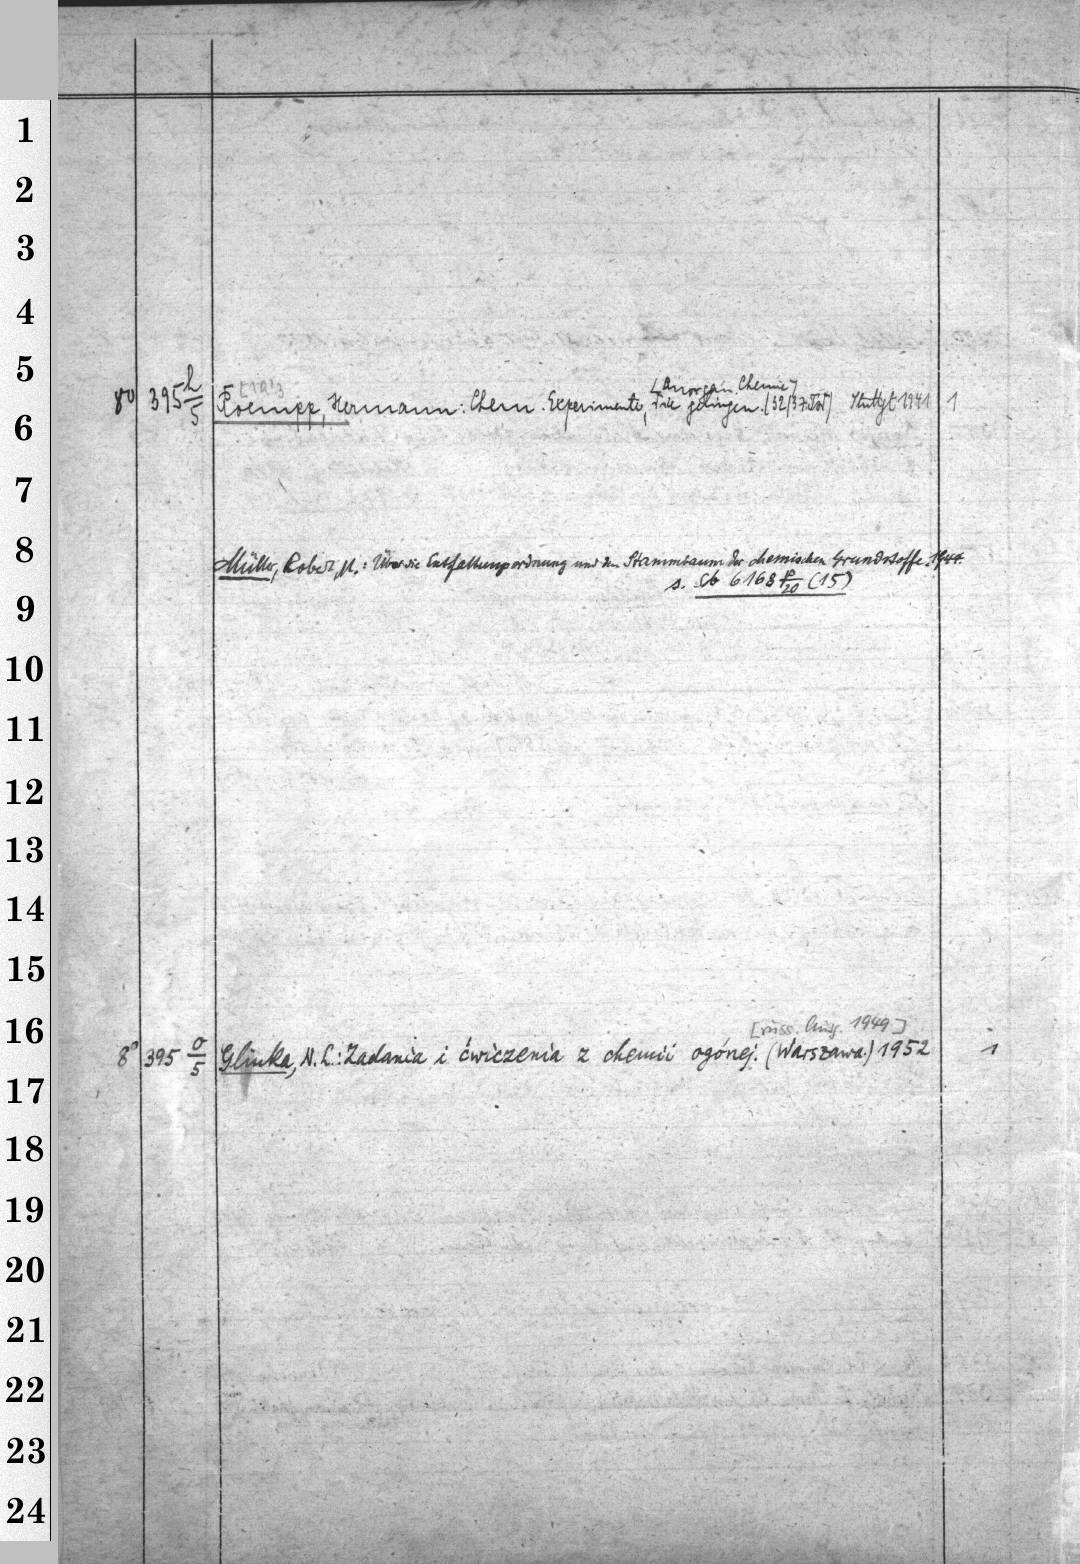 1
2
3
4
5
[Anorgan. Chemie]
8° 395 h/5 Roempp, Hermann: Chem. Experimente, die gelingen. (32/37.Tsd) Stuttgt 1941 1
6
7
8
Müller, Robert M.: Über die Entfaltungsordnung und den Stammbaum der chemischen Grundstoffe. 1944.
s. Cb 6168 p/20 (15)
9
10
11
12
13
14
15
16
[russ. Ausg. 1949]
8° 395 o/5 Glinka, N. L.: Zadania i ćwiczenia z chemii ogónej. (Warszawa.) 1952 1
17
18
19
20
21
22
23
24